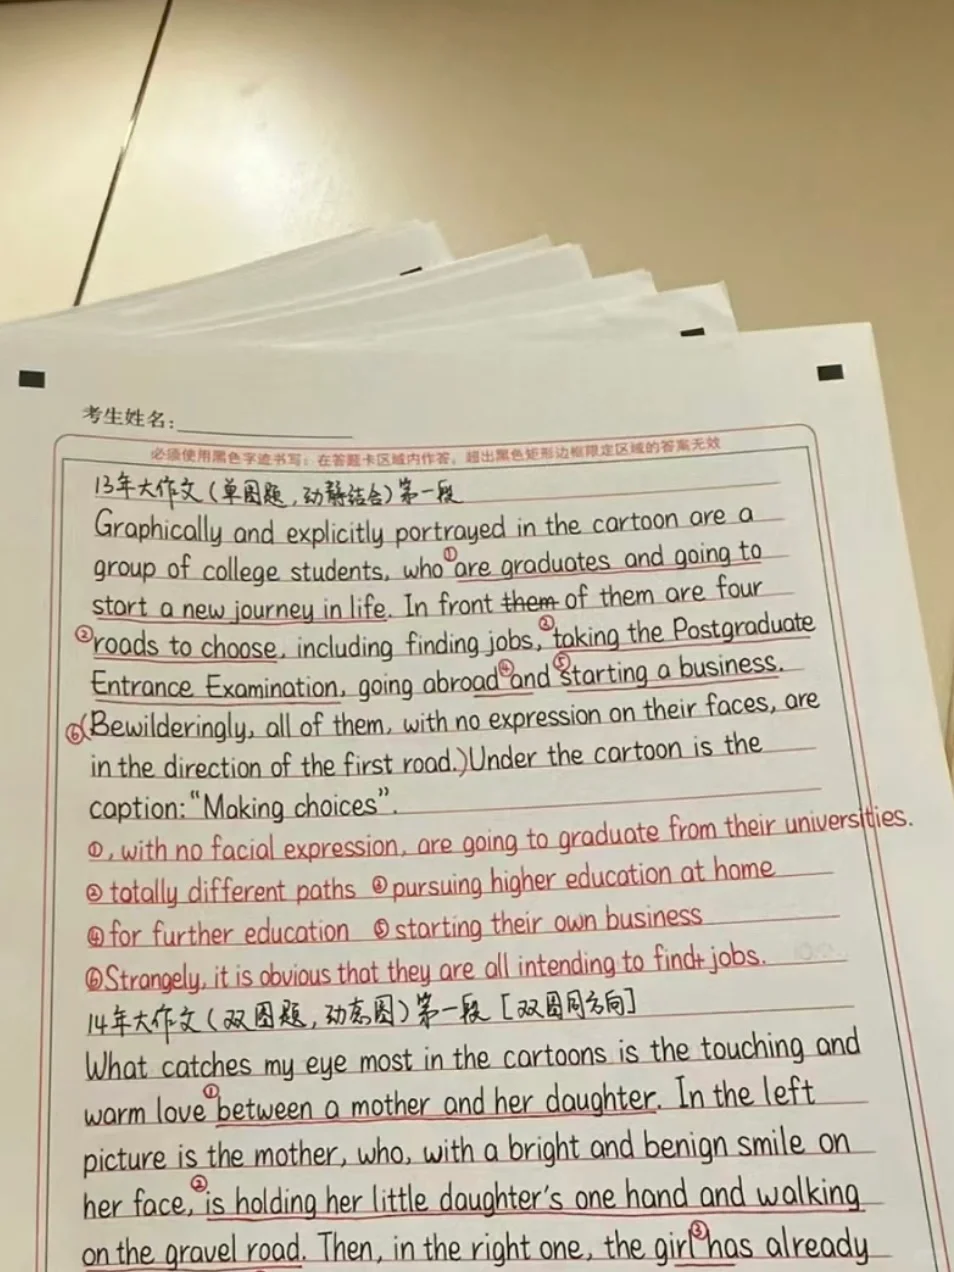 考生姓名:
必须使用黑色字迹书写；在答题卡区域内作答，超出黑色矩形边框限定区域的答案无效
13年大作文(单图题,动静结合)第一段
Graphically and explicitly portrayed in the cartoon are a
group of college students, who ①are graduates and going to
start a new journey in life. In front them of them are four
②roads to choose, including finding jobs, ③taking the Postgraduate
Entrance Examination, going abroad④ and ⑤starting a business.
⑥(Bewilderingly, all of them, with no expression on their faces, are
in the direction of the first road.)Under the cartoon is the
caption:“Making choices”.
①, with no facial expression, are going to graduate from their universities.
② totally different paths ③pursuing higher education at home
④for further education ⑤starting their own business
⑥Strangely, it is obvious that they are all intending to find jobs.
14年大作文(双图题,动态图)第一段[双图同方向]
What catches my eye most in the cartoons is the touching and
warm love ①between a mother and her daughter. In the left
picture is the mother, who, with a bright and benign smile on
her face, ②is holding her little daughter's one hand and walking
on the gravel road. Then, in the right one, the girl ③has already